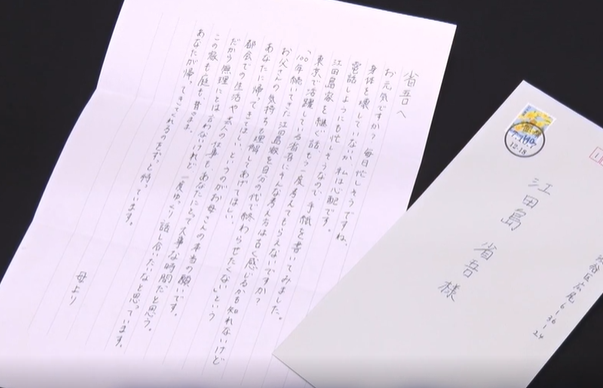 省吾へ
お元気ですか。毎日忙しそうですね。
身体を壊していないか、私は心配です。
電話しようにも忙しそうなので、手紙を書いてみました。
江田島家を継ぐ話もう一度考えてもらえないですか?
東京で活躍している省吾にそんな考え方は古く感じるかも知れないけど
100年続いてきた江田島家を自分の代で終わらせたくないという
お父さんの気持ちも理解してあげてほしい。
あなたに帰ってきてほしい、というのがお母さんの本当の願いです。
都会での生活や
仕事もあなたにとって大事な時間だと思う。
だから無理にとは言わないけれど、一度ゆっくり話し合いたいなと思っています。
この家も庭も昔のまま、
あなたが帰ってきてくれるのをずっと待っています。
母より
谷区広尾6-36-24
江田島 省吾様
12.18